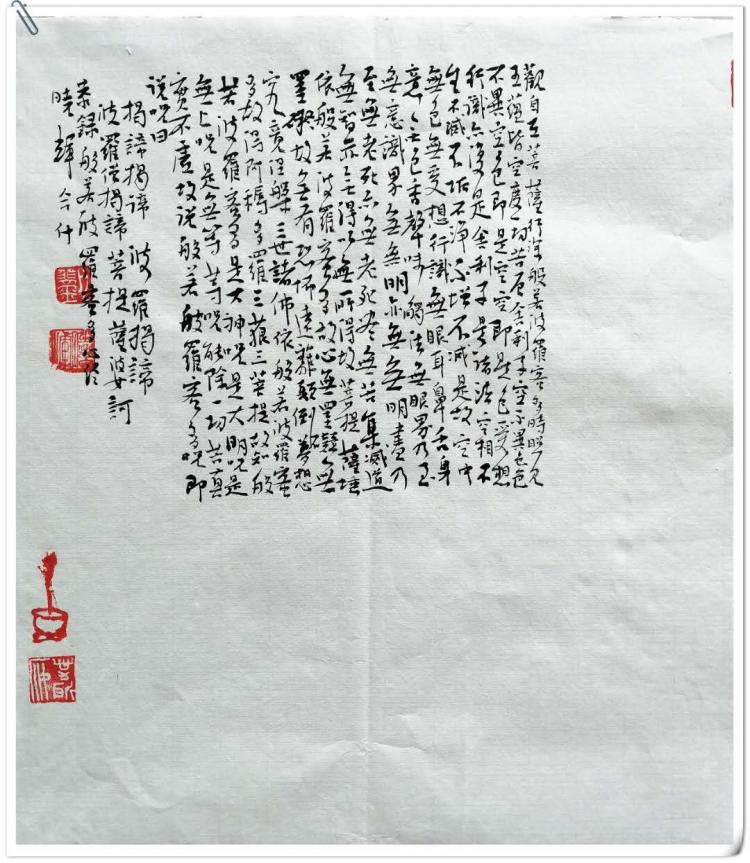 觀自在菩薩行深般若波羅蜜多時照見
五蘊皆空度一切苦厄舍利子空不異色色
不異空色即是空空即是色受想
行識亦復是舍利子是諸法空相不
生不滅不垢不淨不增不減是故空中
無色無受想行識無眼耳鼻舌身
意無色香聲味觸法無眼界乃至
無意識界無無明亦無無明盡乃
至無老死亦無老死盡無苦集滅道
無智亦無得以無所得故菩提薩埵
依般若波羅蜜多故心無罣礙無
罣礙故無有恐怖遠離顛倒夢想
究竟涅槃三世諸佛依般若波羅蜜
多故得阿耨多羅三藐三菩提故知般
若波羅蜜多是大神咒是大明咒是
無上咒是無等等咒能除一切苦真
實不虛故說般若般羅蜜多咒即
說咒曰
揭諦揭諦 波羅揭諦
波羅僧揭諦 菩提薩婆訶
恭錄般若波羅蜜多心經
曉輝